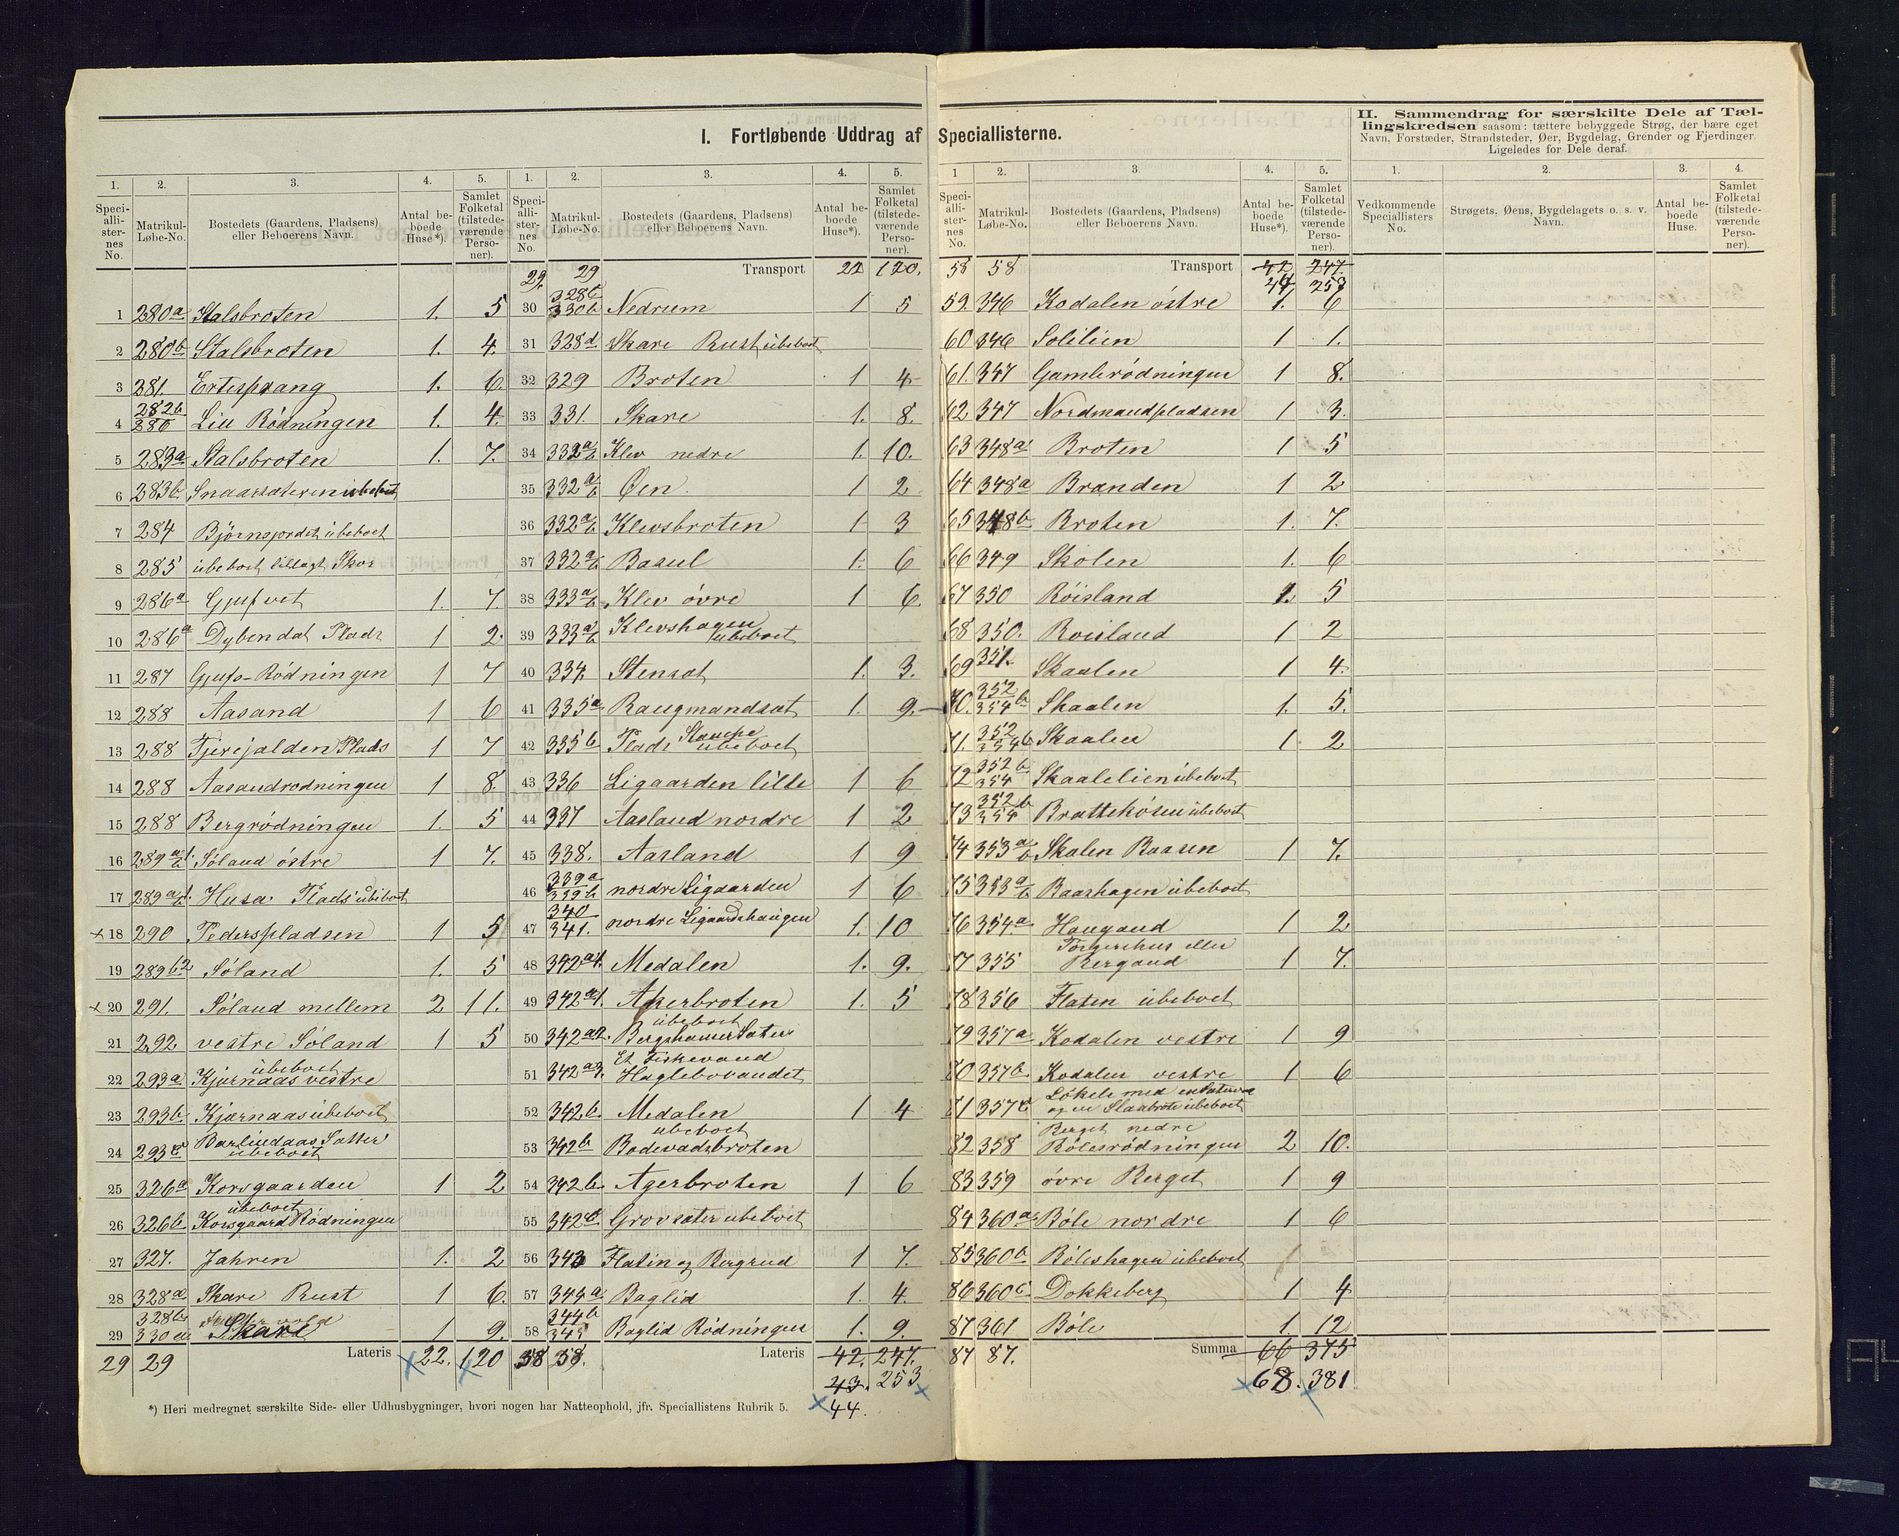 I. Fortløbende Uddrag af Speciallisterne.
II. Sammendrag for særskilte Dele af Tæl-
lingskredsen saasom: tættere bebyggede Strøg, der bære eget
Navn, Forstæder, Strandsteder, Øer, Bygdelag, Grender og Fjerdinger.
Ligeledes for Dele deraf.
1. 2. 3. 4. 5.
Speciallisternes No. Matrikul-Løbe-No. Bostedets (Gaardens, Pladsens) eller Beboerens Navn. Antal beboede Huse*). Samlet Folketal (tilstedeværende Personer).
1 280a Stalsbroten 1. 5
2 280b Stalsbroten 1. 4.
3 281. Ertesprang 1. 6.
4 282b 280 Liu Rødningen 1. 4.
5 283a Stalsbroten 1. 7.
6 283b Snaarsæteren ubeboet
7 284 Bjørnsjordet ubeboet
8 285 ubeboet tillagt Skov
9 286a Gjufvet 1. 7.
10 286a Dybendal Plads 1 2.
11 287 Gjufs-Rødningen 1 7
12 288 Aasand 1 6
13 288 Fjerejalden Plads 1 7
14 288 Aasandrødningen 1 8.
15 288 Bergrødningen 1. 5
16 289 Søland østre 1 7.
17 289 Husa Plads ubeboet
18 290 Pederspladsen 1 5
19 289b2 Søland 1. 5
20 291. Søland mellem 2 11.
21 292 vestre Søland 1 5
22 293a ubeboet Kjærnaas vestre
23 293b Kjærnaas ubeboet
24 293c Barlindaas Sætter ubeboet
25 326a Korsgaarden 1 2
26 326b ubeboet Korsgaard Rødningen
27 327. Jahren 1. 2
28 328a Skare Rust 1 6.
29 328b 330a Skare 1 9.
29 29 Lateris 22. 120
1. 2. 3. 4. 5.
Speciallisternes No. Matrikul-Løbe-No. Bostedets (Gaardens, Pladsens) eller Beboerens Navn. Antal beboede Huse*). Samlet Folketal (tilstedeværende Personer).
29. 29 Transport 22 120.
30 328c 330b Nedrum 1 5
31 328d Skare Rust ubeboet
32 329 Broten 1 4
33 331. Skare 1. 8.
34 332a/b Klev nedre 1. 10.
35 332a/b Øen. 1 2
36 332a/b Klevsbroten 1 3
37 332a/b Basul 1. 6
38 333a/b Klev øvre 1 6.
39 333a/b Klevshagen ubeboet
40 334. Stensæt 1. 3.
41 335a Raugmandsæt 1. 9.
42 335b Plads ubeboet
43 336 Ligaarden lille 1 6
44 337 Aasland nordre 1 2
45 338. Aasland 1 9
46 339a 339b nordre Ligaarden 1 6
47 340 341. nordre Ligaardshaugen 1. 10
48 342a1. Medalen 1. 9.
49 342a1. Agerbroten 1. 5
50 342a2. ubeboet Bergshamer Sæter
51 342a3. Et Fiskevand Haglebovandet
52 342b. Medalen 1 4
53 342b ubeboet Bodevadsbroten
54 342b. Agerbroten 1 6
55 342c Grovsæter ubeboet
56 343 Flatin og Bergrud 1 7.
57 344a Baglid 1. 4.
58 344b 345 Baglid Rødningen 1. 9.
58 58. Lateris 42. 247.
43. 253
44.
*) Heri medregnet særskilte Side- eller Udhusbygninger, hvori nogen har Natteophold, jfr. Speciallistens Rubrik 5.
1 2. 3. 4. 5.
Speciallisternes No. Matrikul-Løbe-No. Bostedets (Gaardens, Pladsens) eller Beboerens Navn. Antal beboede Huse*). Samlet Folketal (tilstedeværende Personer).
58 58 Transport 42 247
44 253
59. 346 Kodalen østre 1. 6
60 346 Solilien 1 1.
61. 347 Gamlerødningen 1 8.
62 347 Nordmandpladsen 1 3.
63 348a Broten 1 5
64 348a Brænden 1 2
65 348b Broten 1. 7.
66 349 Skolen 1. 6
67 350 Røisland 1. 5
68 350. Roisland 1 2
69 351. Skaalen 1 4.
70. 352 354b Skaalen 1. 5.
71. 352 354b Skaalen 1 2
72 352b 354 Skaalelien ubeboet
73 352b 354 Brattehøsen ubeboet
74 353a/b Skalen Baasen 1 7.
75 353a/b Baashagen ubeboet
76 354a Haugand 1 2
77 355 Torgershus eller Bergaud 1 7.
78 356 Flaten ubeboet
79 357a Kodalen vestre 1 9
80 357b Kodalen vestre 1 6
81 357c Løkele med en Sæter og en Slaabrote ubeboet
82 358 Berget nedre Bølesrødningen 2 10.
83 359 øvre Berget 1 9
84 360a Bøle nordre 1 6
85 360b Bøleshagen ubeboet
86 360c Dokkeberg 1 4
87 361 Bøle 1 12
87 87. Summa 66 375
68. 381
1. 2. 3. 4.
Vedkommende Speciallisters No. Strøgets, Øens, Bygdelagets o. s. v. Navn. Antal beboede Huse. Samlet Folketal (tilstedeværende Personer).